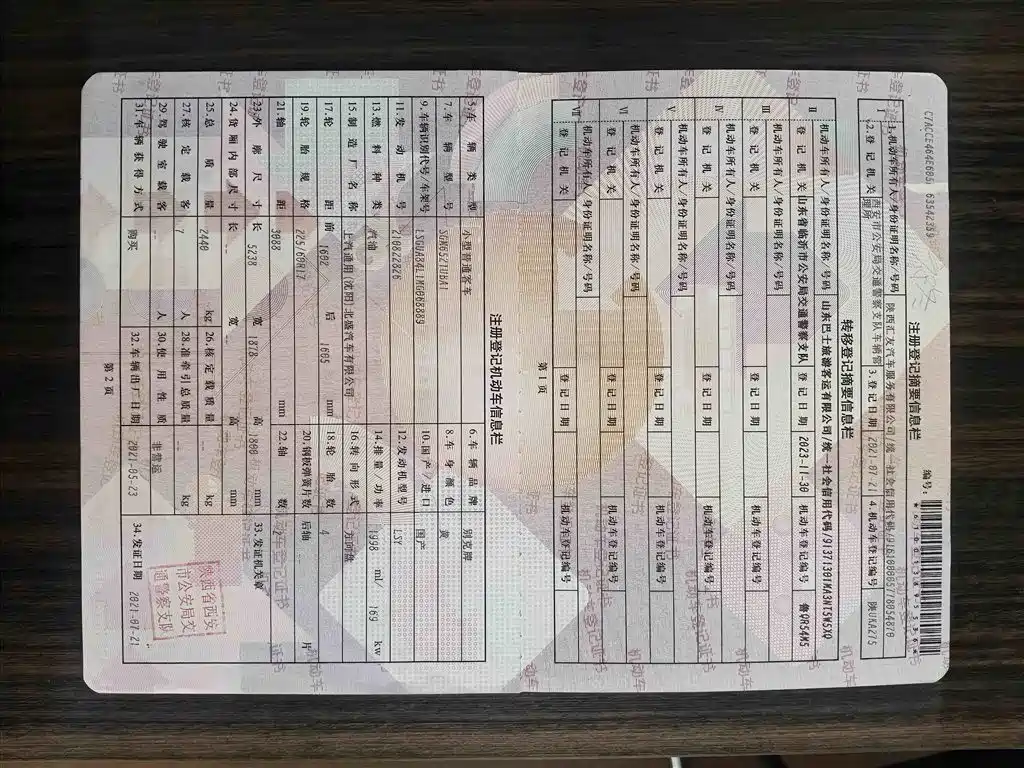 注册登记摘要信息栏
编号:
Ⅰ
1.机动车所有人/身份证明名称/号码 陕西汇友汽车服务有限公司/统一社会信用代码/91610000577805487G
2.登记机关 西安市公安局交通警察支队车辆管理所 3.登记日期 2021-07-21 4.机动车登记编号 陕UKA275
转移登记摘要信息栏
Ⅱ
机动车所有人/身份证明名称/号码 山东巴士旅游客运有限公司/统一社会信用代码/91371301MA3NT5W5XQ
登记机关 山东省临沂市公安局交通警察支队 登记日期 2023-11-30 机动车登记编号 鲁QR54M5
Ⅲ
机动车所有人/身份证明名称/号码
登记机关 登记日期 机动车登记编号
Ⅳ
机动车所有人/身份证明名称/号码
登记机关 登记日期 机动车登记编号
Ⅴ
机动车所有人/身份证明名称/号码
登记机关 登记日期 机动车登记编号
Ⅵ
机动车所有人/身份证明名称/号码
登记机关 登记日期 机动车登记编号
Ⅶ
机动车所有人/身份证明名称/号码
登记机关 登记日期 机动车登记编号
第1页
注册登记机动车信息栏
5.车辆类型 小型普通客车 6.车辆品牌 别克牌
7.车辆型号 SGM6521UBA1 8.车身颜色 黄
9.车辆识别代号/车架号 LSGUA84L1MG068889 10.国产/进口 国产
11.发动机号 210822826 12.发动机型号 LSY
13.燃料种类 汽油 14.排量/功率 1998 ml/ 169 kw
15.制造厂名称 上汽通用(沈阳)北盛汽车有限公司 16.转向形式 方向盘
17.轮距 前 1602 后 1605 mm 18.轮胎数 4
19.轮胎规格 225/60R17 20.钢板弹簧片数 后轴 片
21.轴距 3088 mm 22.轴数 2
23.外廓尺寸 长 5238 宽 1878 高 1800 mm 33.发证机关章
24.货厢内部尺寸 长 宽 高 mm
25.总质量 2440 kg 26.核定载质量 -- kg
27.核定载客 7 人 28.准牵引总质量 -- kg
29.驾驶室载客 -- 人 30.使用性质 非营运
31.车辆获得方式 购买 32.车辆出厂日期 2021-05-23 34.发证日期 2021-07-21
陕西省西安
市公安局交
通警察支队
第2页